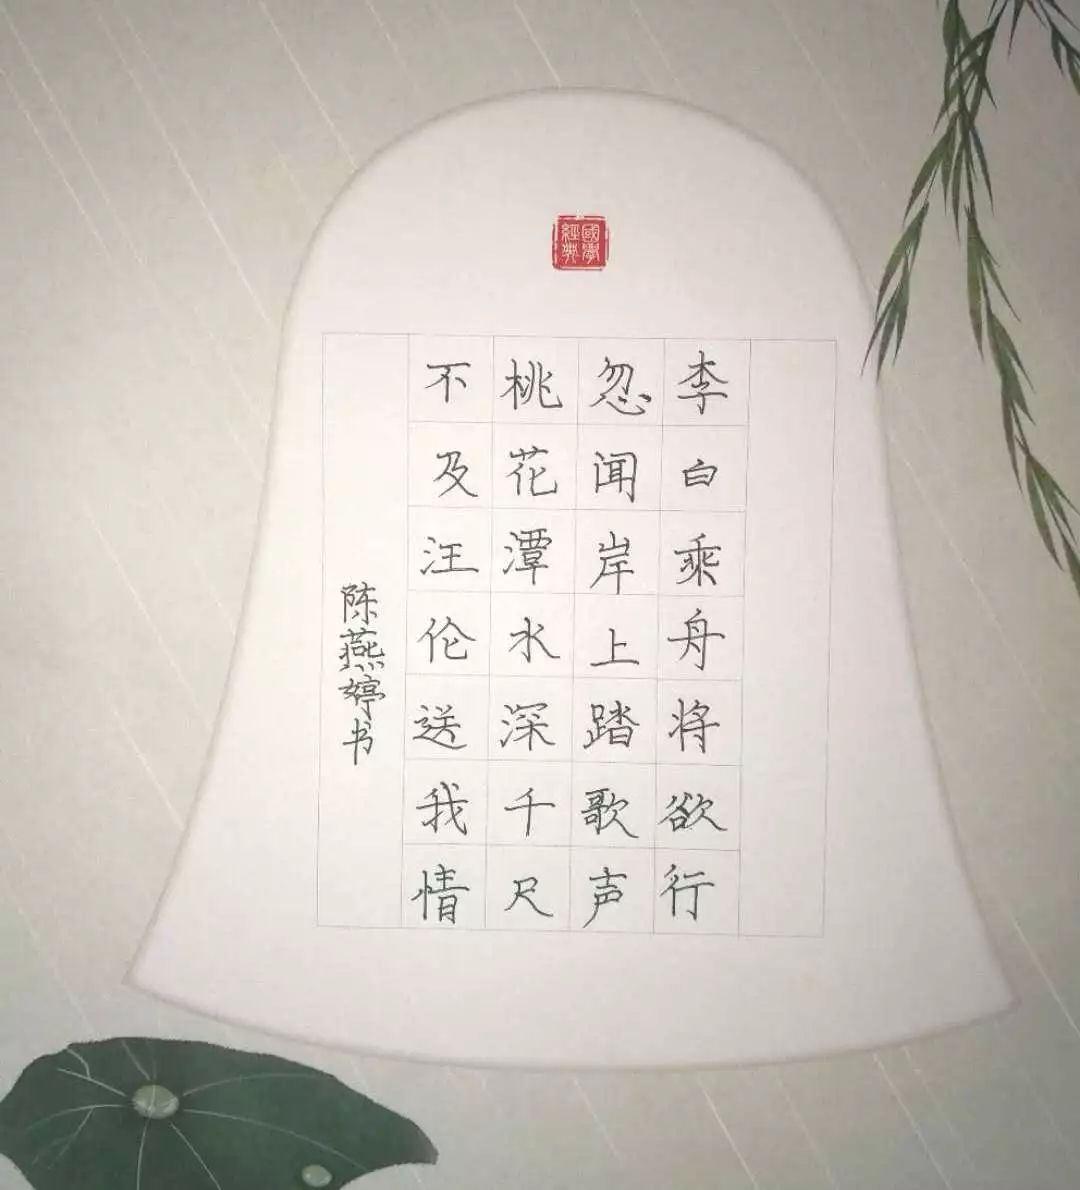 國學經典
李白乘舟将欲行
忽闻岸上踏歌声
桃花潭水深千尺
不及汪伦送我情
陈燕婷书